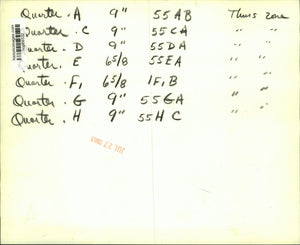 Quarter . A 9" 55 AB Thurs zone
Quarter . C 9" 55 CA " "
Quarter . D 9" 55 DA " "
Quarter . E 6 5/8 55 EA " "
Quarter . F, 6 5/8 1F, B " "
Quarter . G 9" 55 GA " "
Quarter . H 9" 55 H C
JUL 27 1965